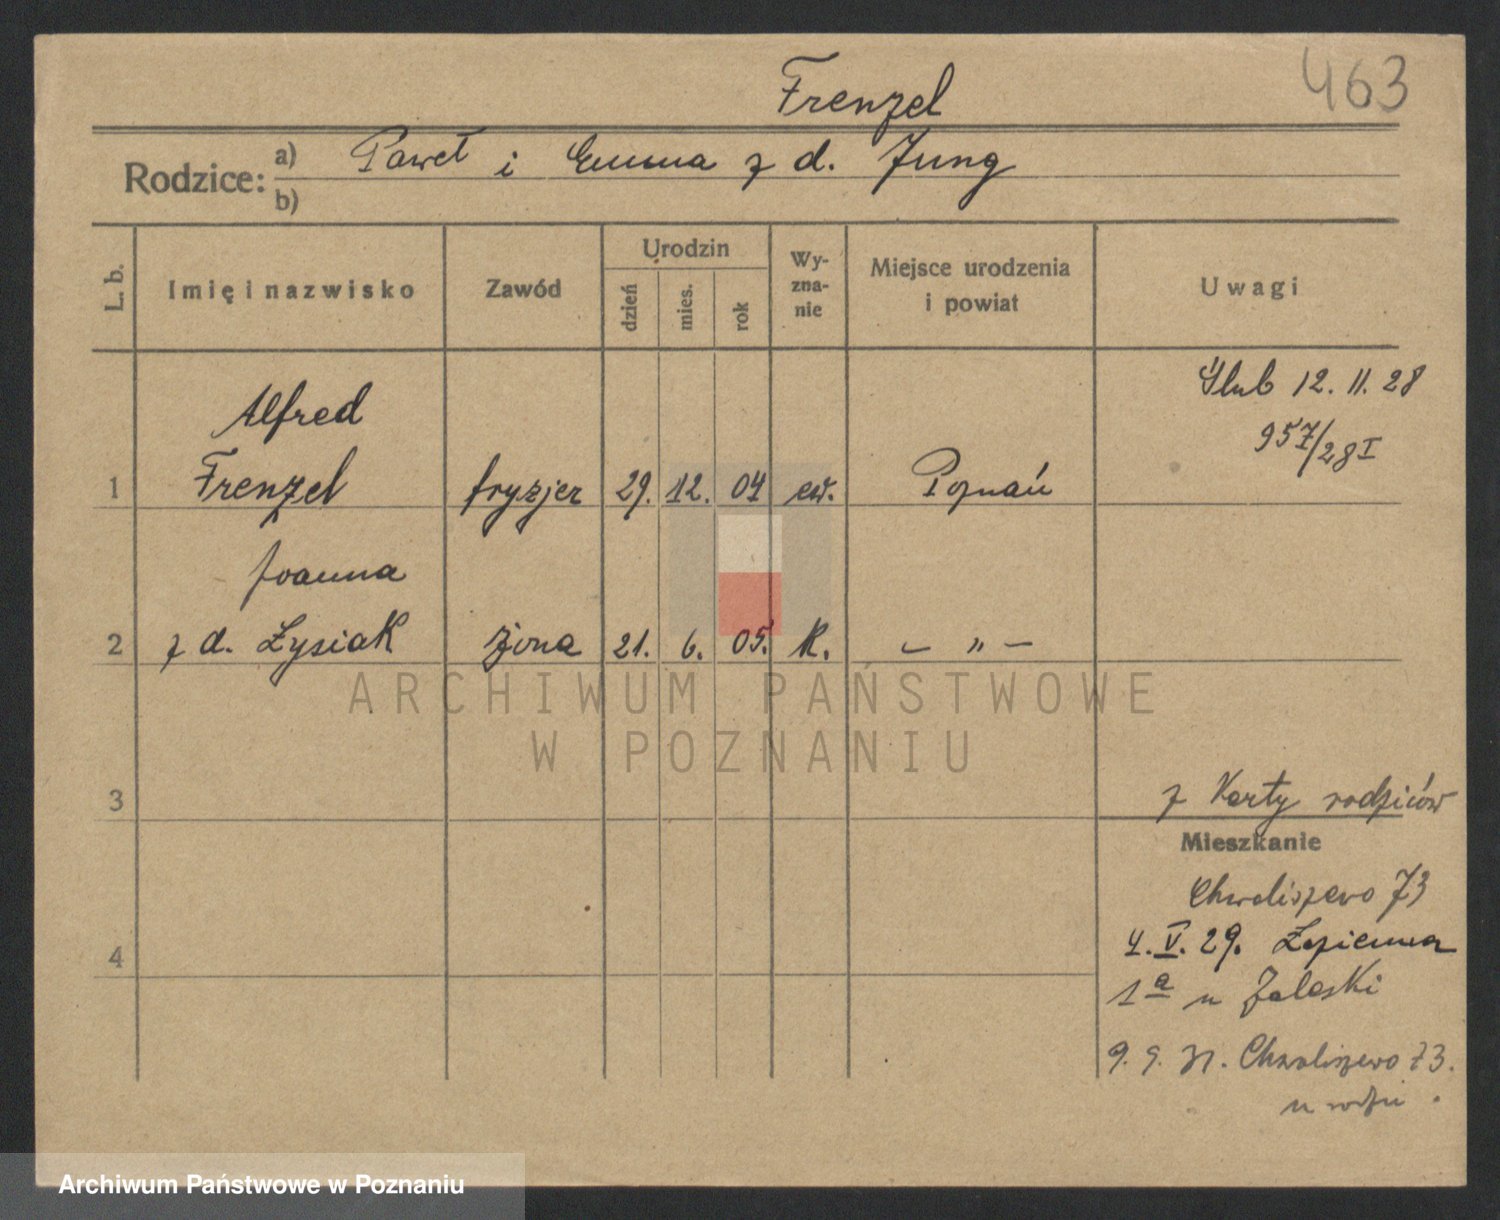 463
Frenzel
Rodzice: a) Paweł i Emma z d. Jung
b)
L. b.
Imię i nazwisko
Zawód
Urodzin
dzień
mies.
rok
Wy-
zna-
nie
Miejsce urodzenia
i powiat
Uwagi
Ślub 12. 11. 28
957/28 I
Alfred
1 Frenzel fryzjer 29. 12. 04 ew. Poznań
Joanna
2 z d. Łysiak żona 21. 6. 05. k. — „ —
3
z Karty rodziców
Mieszkanie
Chwaliszewo 73
4. V. 29.
4
1a u Zaleski
9. 9. Chwaliszewo 73.
u
ARCHIWUM PAŃSTWOWE
W POZNANIU
Archiwum Państwowe w Poznaniu